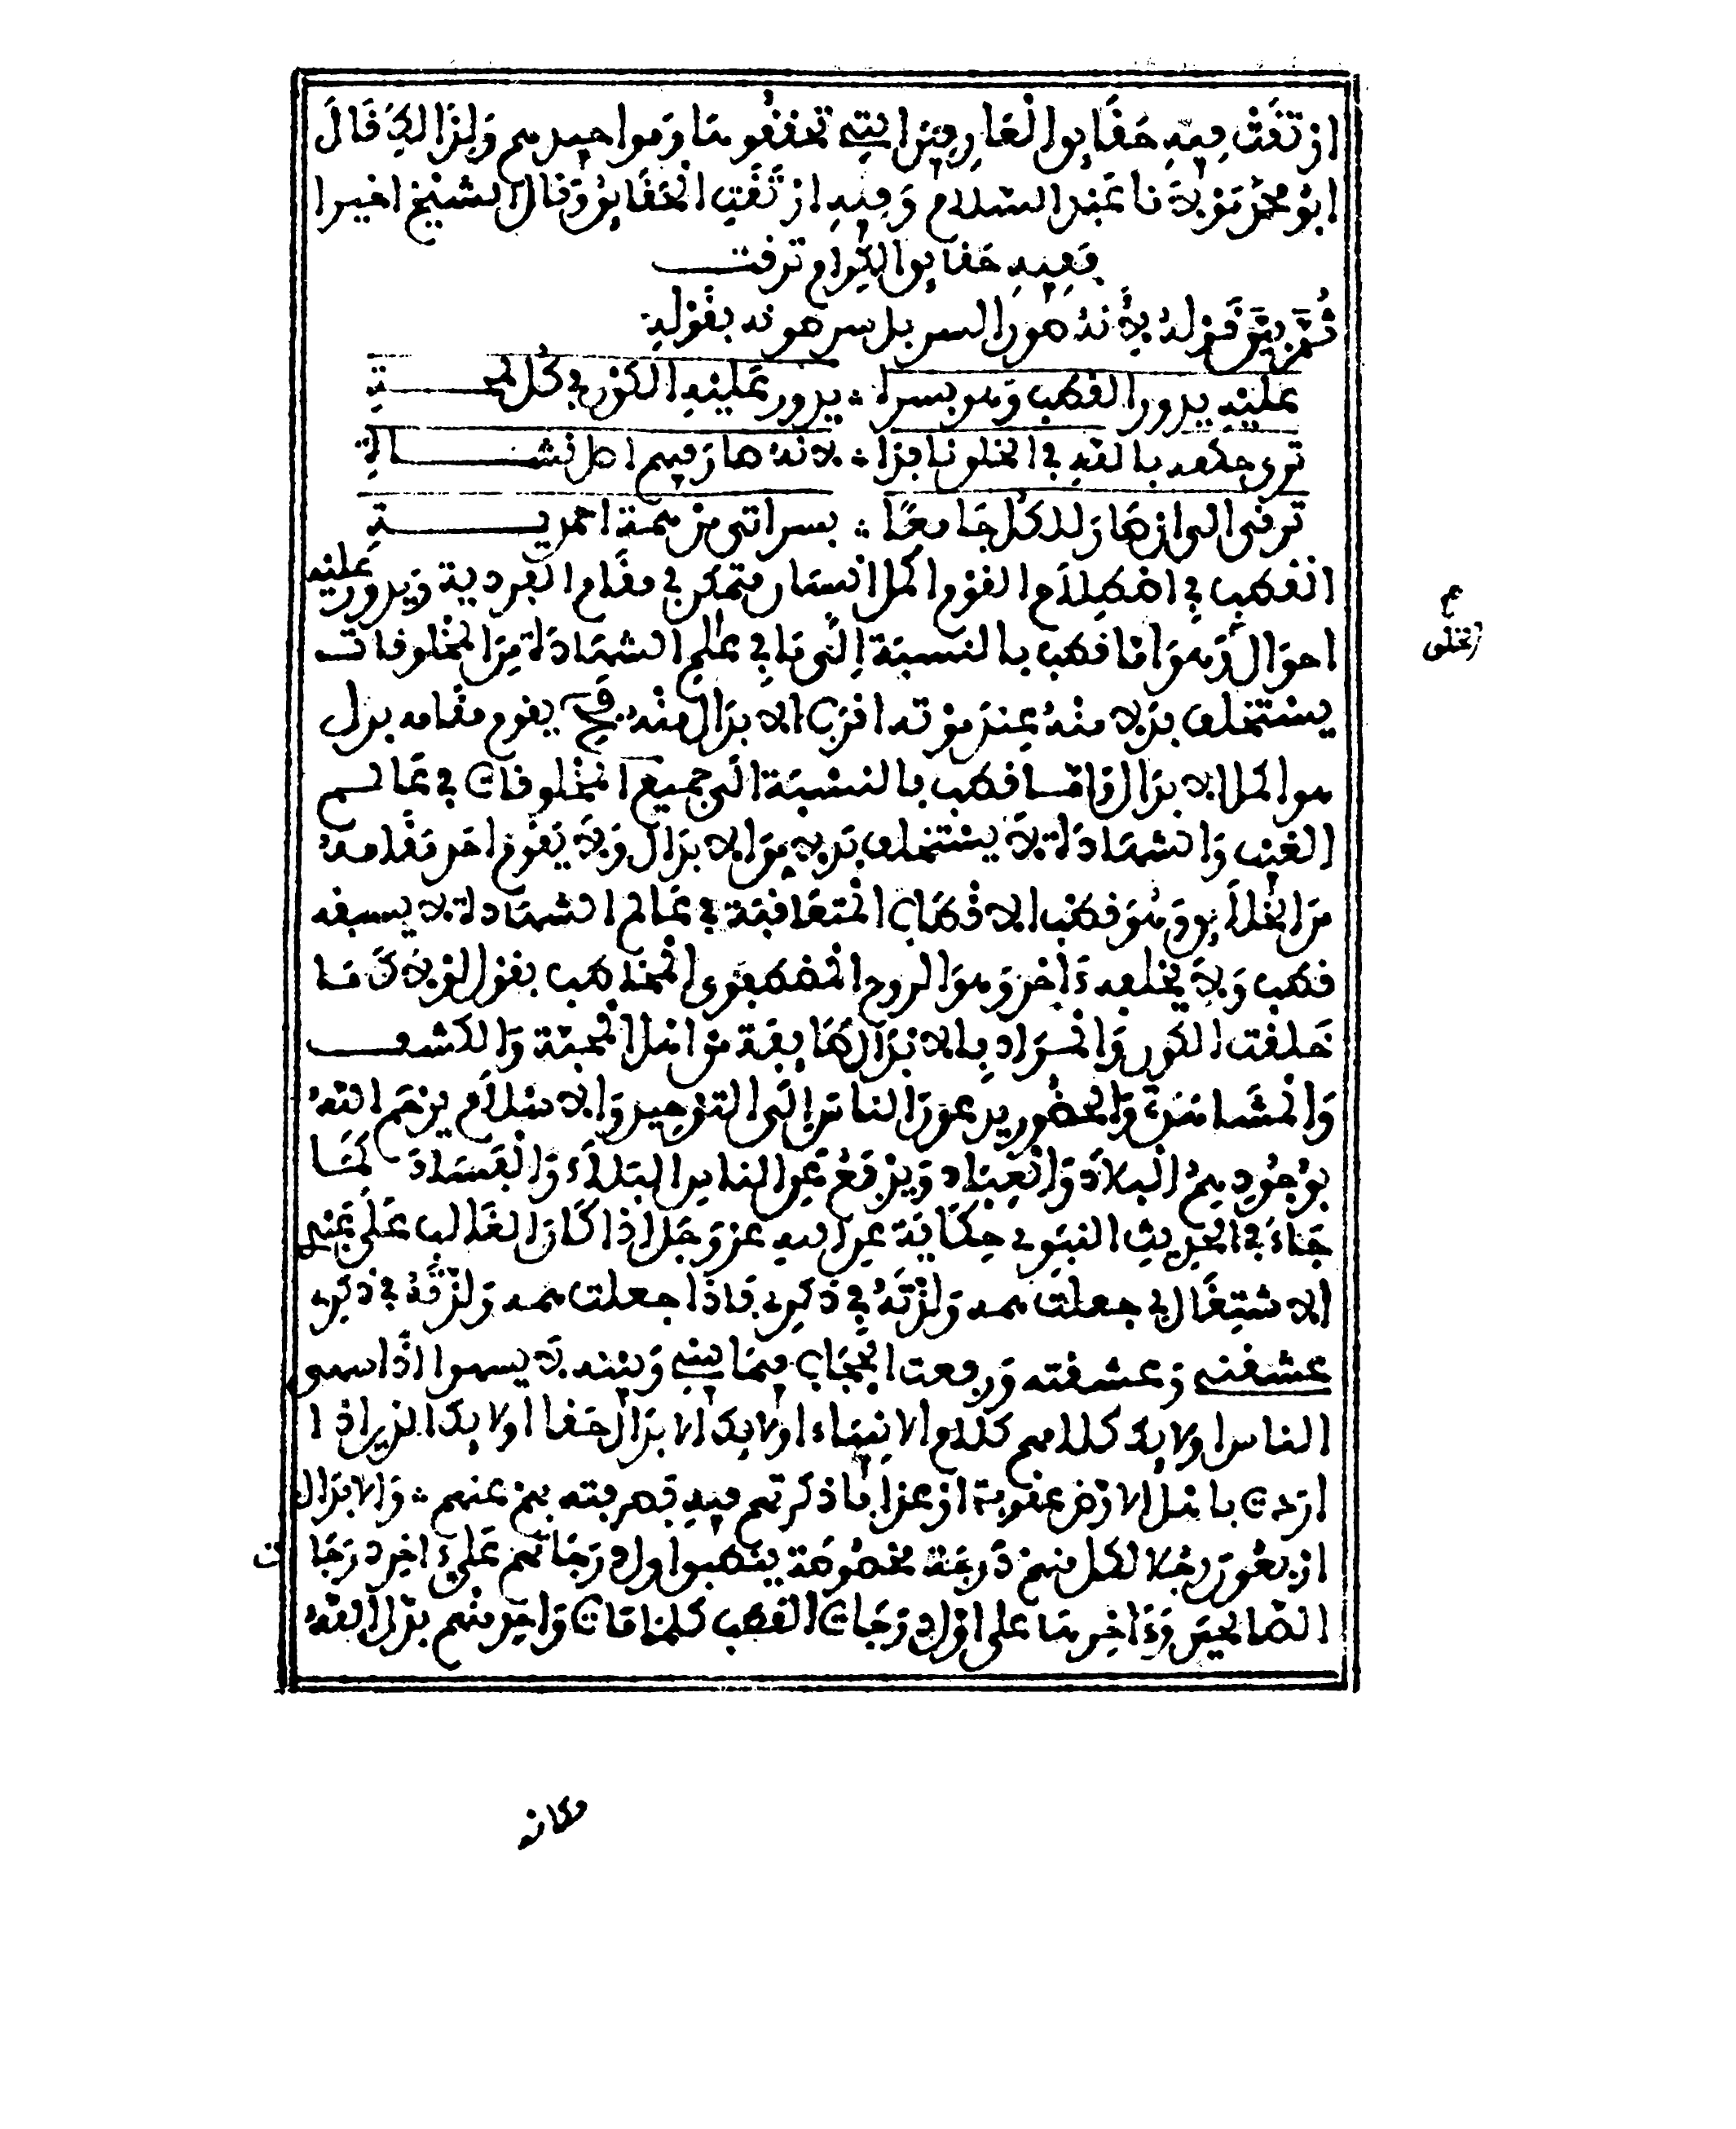 ارتقت فيه حقايق العارفين التي تحققوا بها ومواجيدهم ولذلك قال
ابو محمد مولانا عبد السلام وفيه ارتقت الحقايق وقال الشيخ اخيرا
ففيه حقايق الكرام ترقت
ثم بين قوله بانه هو السر بل سر هونه بقوله
عليه يدور القطب وهو بسره ؞ يدور عليه الكون في كل لمحة
ترى حكمه بالله في الخلق نافذا ؞ لانه صار فيهم اصل نشاة
ترقى الى ان صار للكل جامعا ؞ بسر اتى من همة احمدية
القطب في اصطلاح القوم اكمل انسان متمكن في مقام الفردية ويدور عليه
احوال الخلق وهو اما قطب بالنسبة الى ما في عالم الشهادة من المخلوفات
يستخلف بدلا منه عند موته اقرب الابدال منه فح يقوم مقامه بدل
هو اكمل الابدال واما قطب بالنسبة الى جميع المخلوفات في عالم
الغيب والشهادة لا يستخلف بدلا من الابدال ولا يقوم احد مقامه
من الخلايق وهو قطب الاقطاب المتعاقبة في عالم الشهادة لا يسبقه
قطب ولا يخلفه ءاخر وهو الروح المصطفوى المخاطب بقول لولاك ما
خلقت الكون والمراد بالابدال طايفة من اهل المحبة والكشف
والمشاهدة والحضور يدعون الناس الى التوحيد والاسلام يرحم الله
بوجودهم البلاد والعباد ويرفع عن الناس البلاء والفساد كما
جاء في الحديث النبوي حكاية عن الله عز وجل اذا كان الغالب على عبدي
الاشتغال بي جعلت همه ولذته في ذكري فاذا جعلت همه ولذته في ذكري
عشقني وعشقته ورفعت الحجاب فيما بيني وبينه لا يسهوا اذا سهى
الناس اولايك كلامهم كلام الانبياء اولايك الابدال حقا اولايك الذين اذا
اردت باهل الارض عقوبة او عذابا ذكرتهم فيه فصرفته بهم عنهم ؞ والابدال
اربعون رجلا لكل منهم درجة مخصوصة ينطبق اول درجاتهم على ءاخر درجات
الصالحين وءاخرها على اول درجات القطب كلما مات واحد منهم بدل الله
مكانه